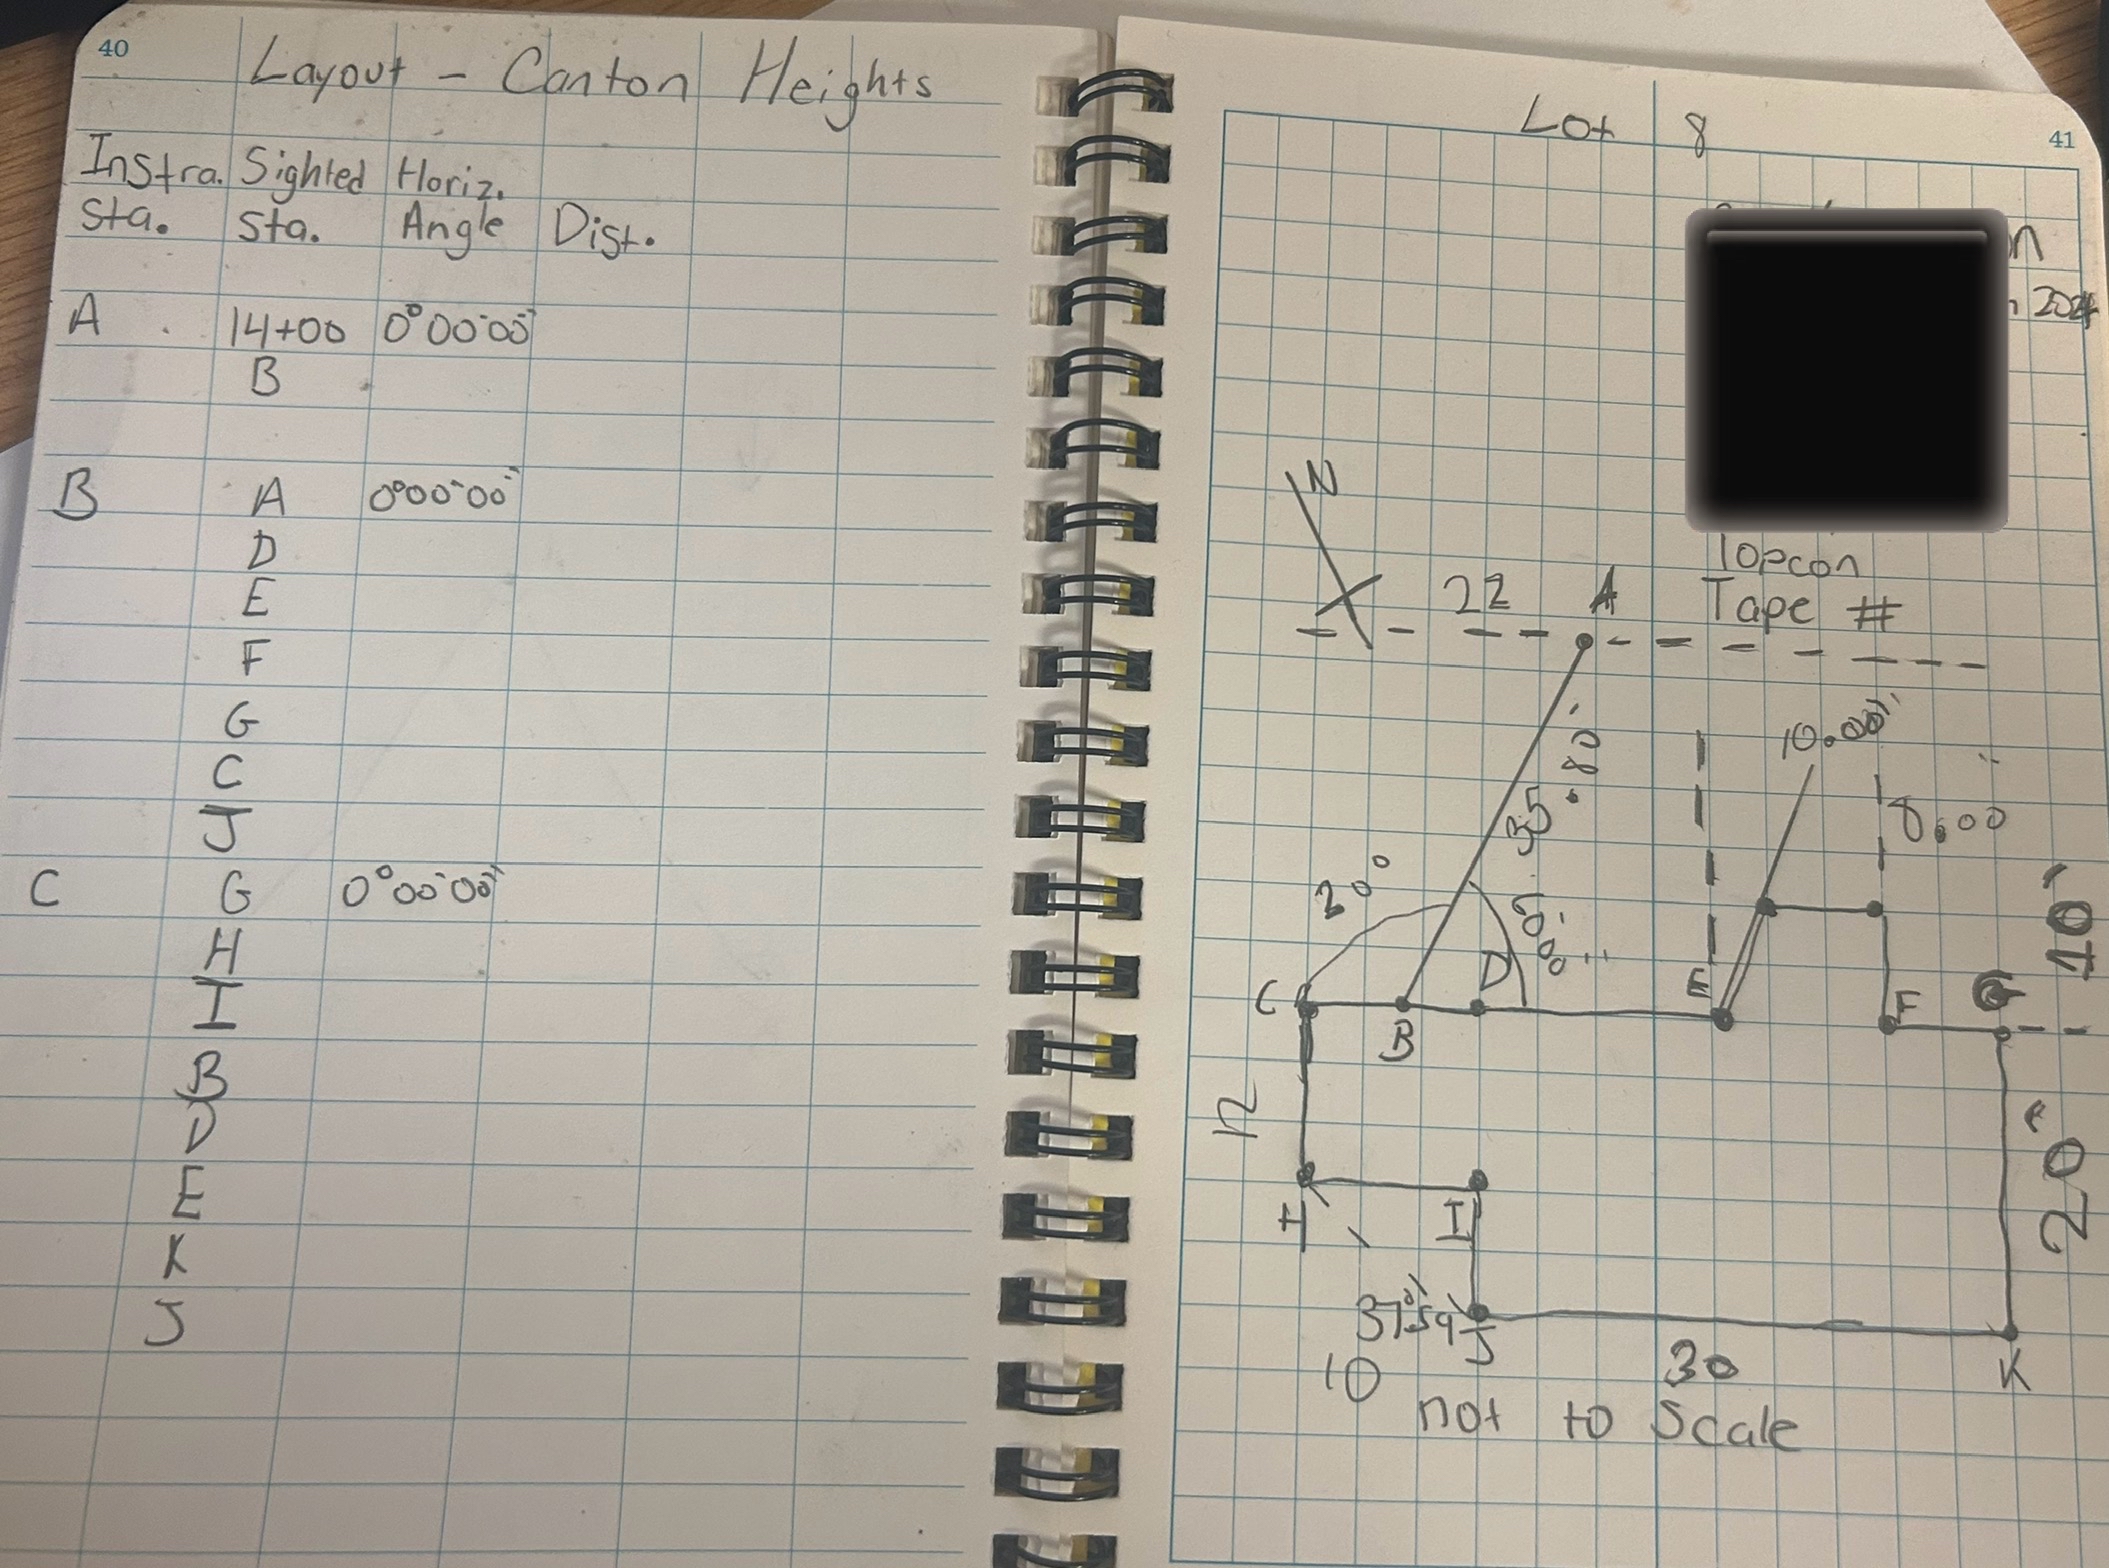 40
Layout - Canton Heights
Instra. Sighted Horiz.
Sta. Sta. Angle Dist.
A 14+00 0°00'00"
B
B A 0°00'00"
D
E
F
G
C
J
C G 0°00'00"
H
I
B
D
E
K
J
Lot 8
41
N
Topcon
22 A Tape #
10.00"
35.80'
8.00
10'
D
E
F G
C
B
20'
H I
J
10 30 K
not to Scale